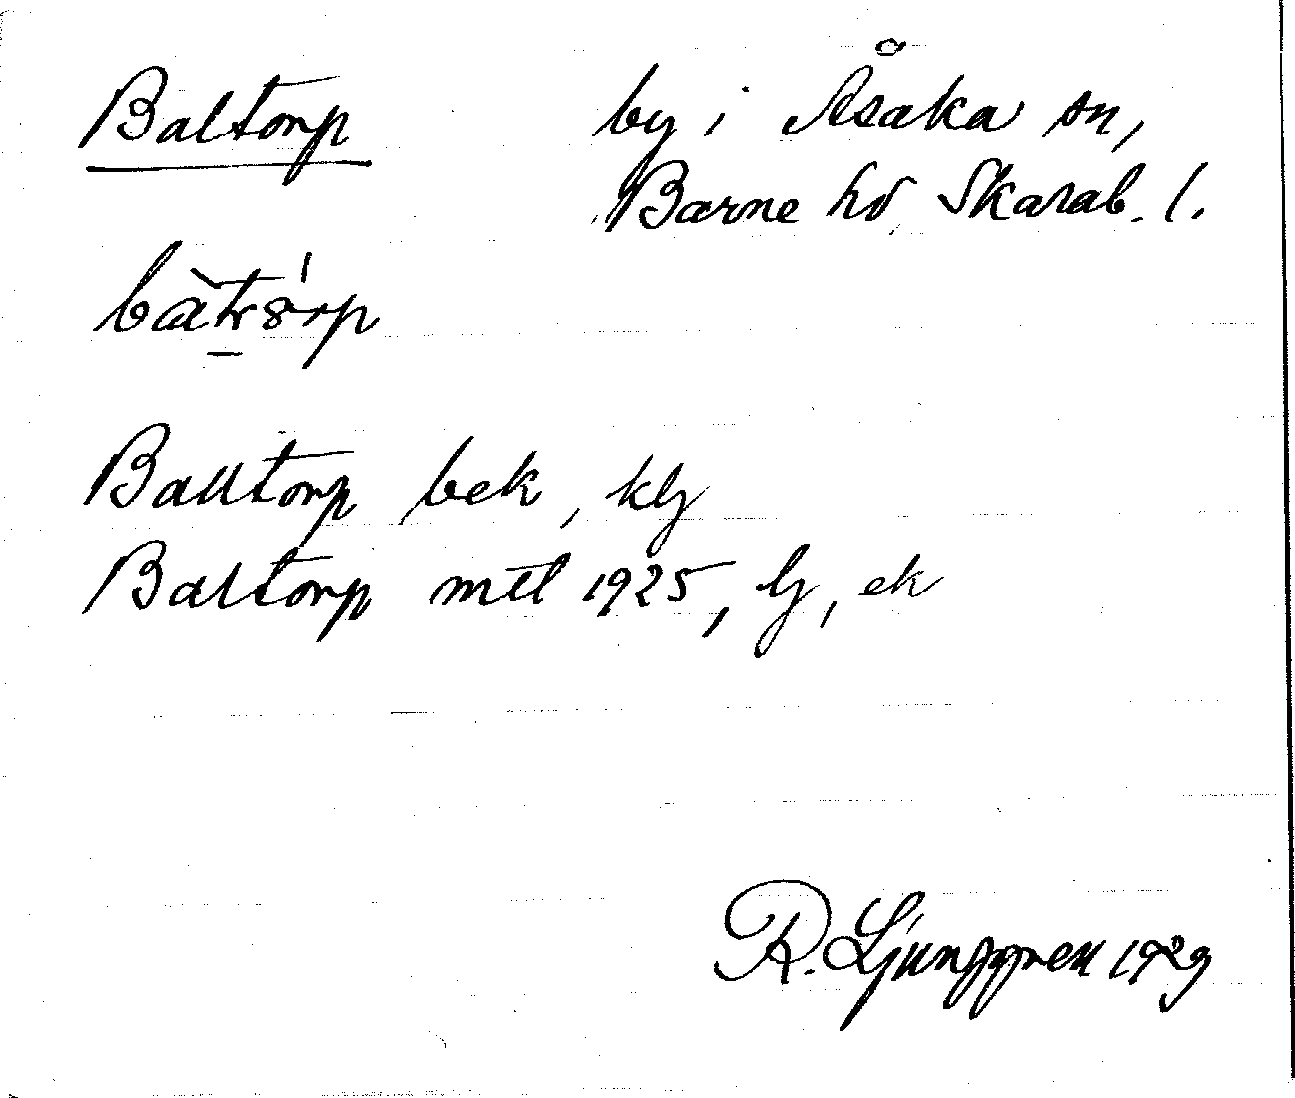 Baltorp by i Åsaka sn,
Barne hd Skarab. l.
Balltorp bek, klj
Baltorp mtl 1925, lj, ek
R. Ljunggren 1929